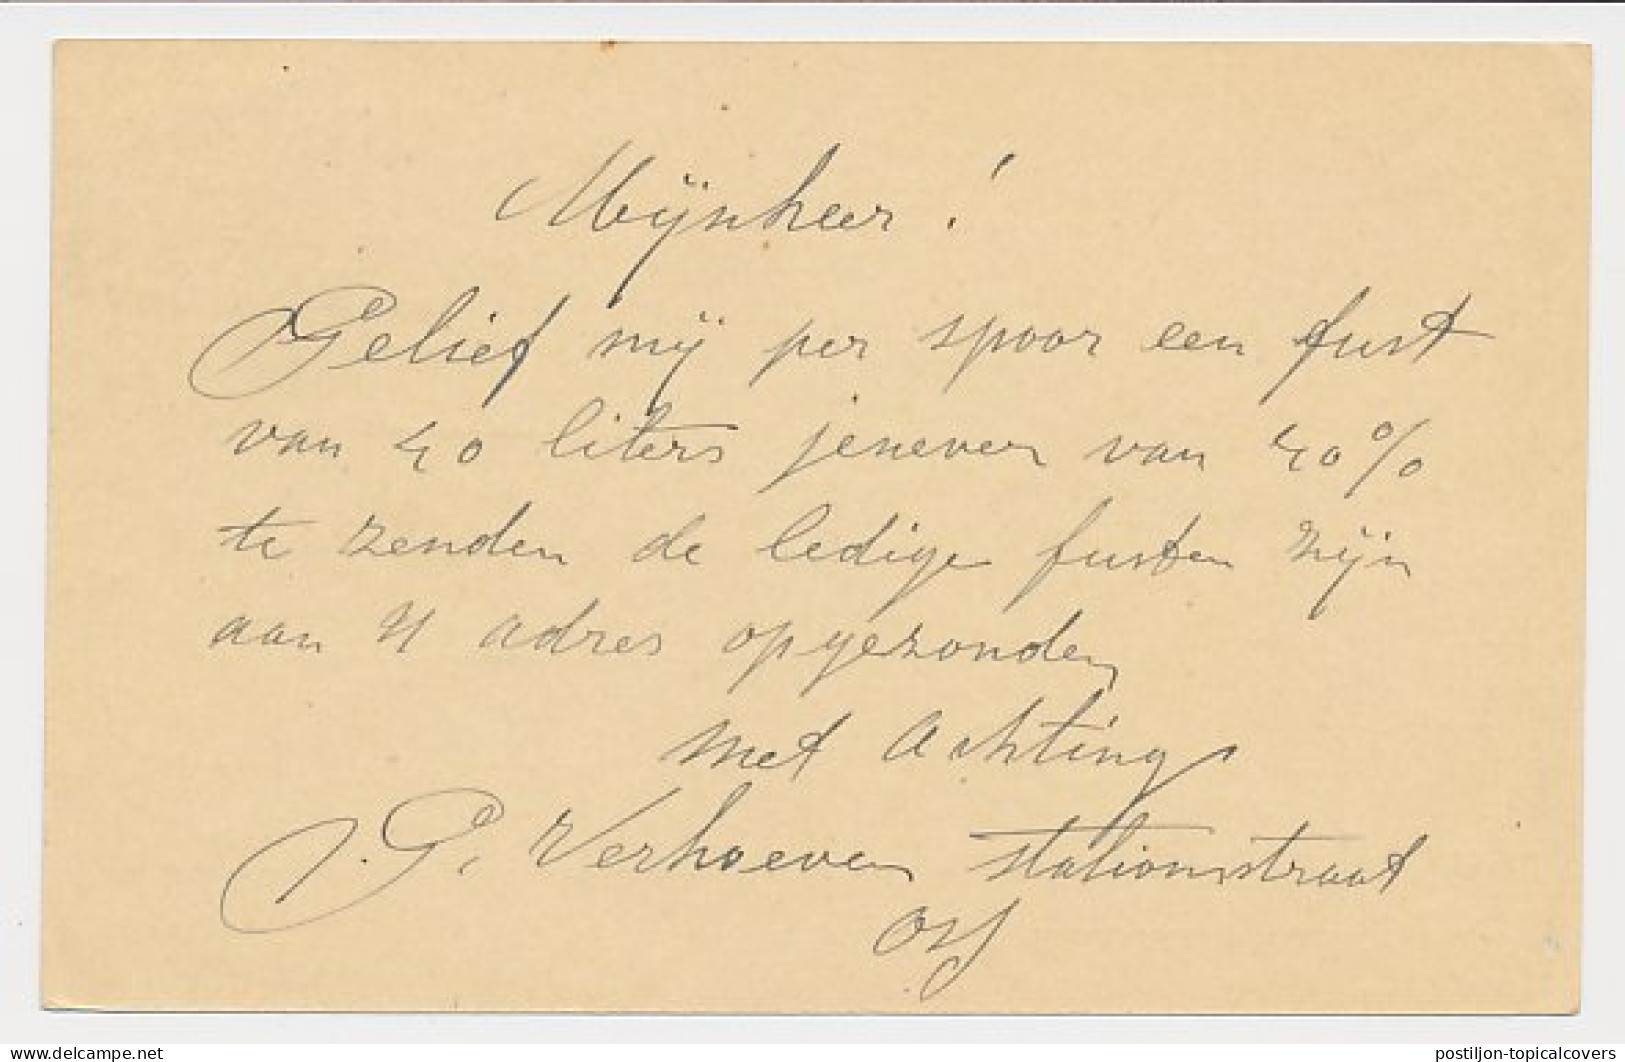 Mijnheer!
Gelief mij per spoor een fust
van 40 liters jenever van 40%
te zenden de ledige fusten zijn
aan U adres opgezonden
met Achting
G. Verhoeven stationsstraat
delcampe.net
postiljon-topicalcovers